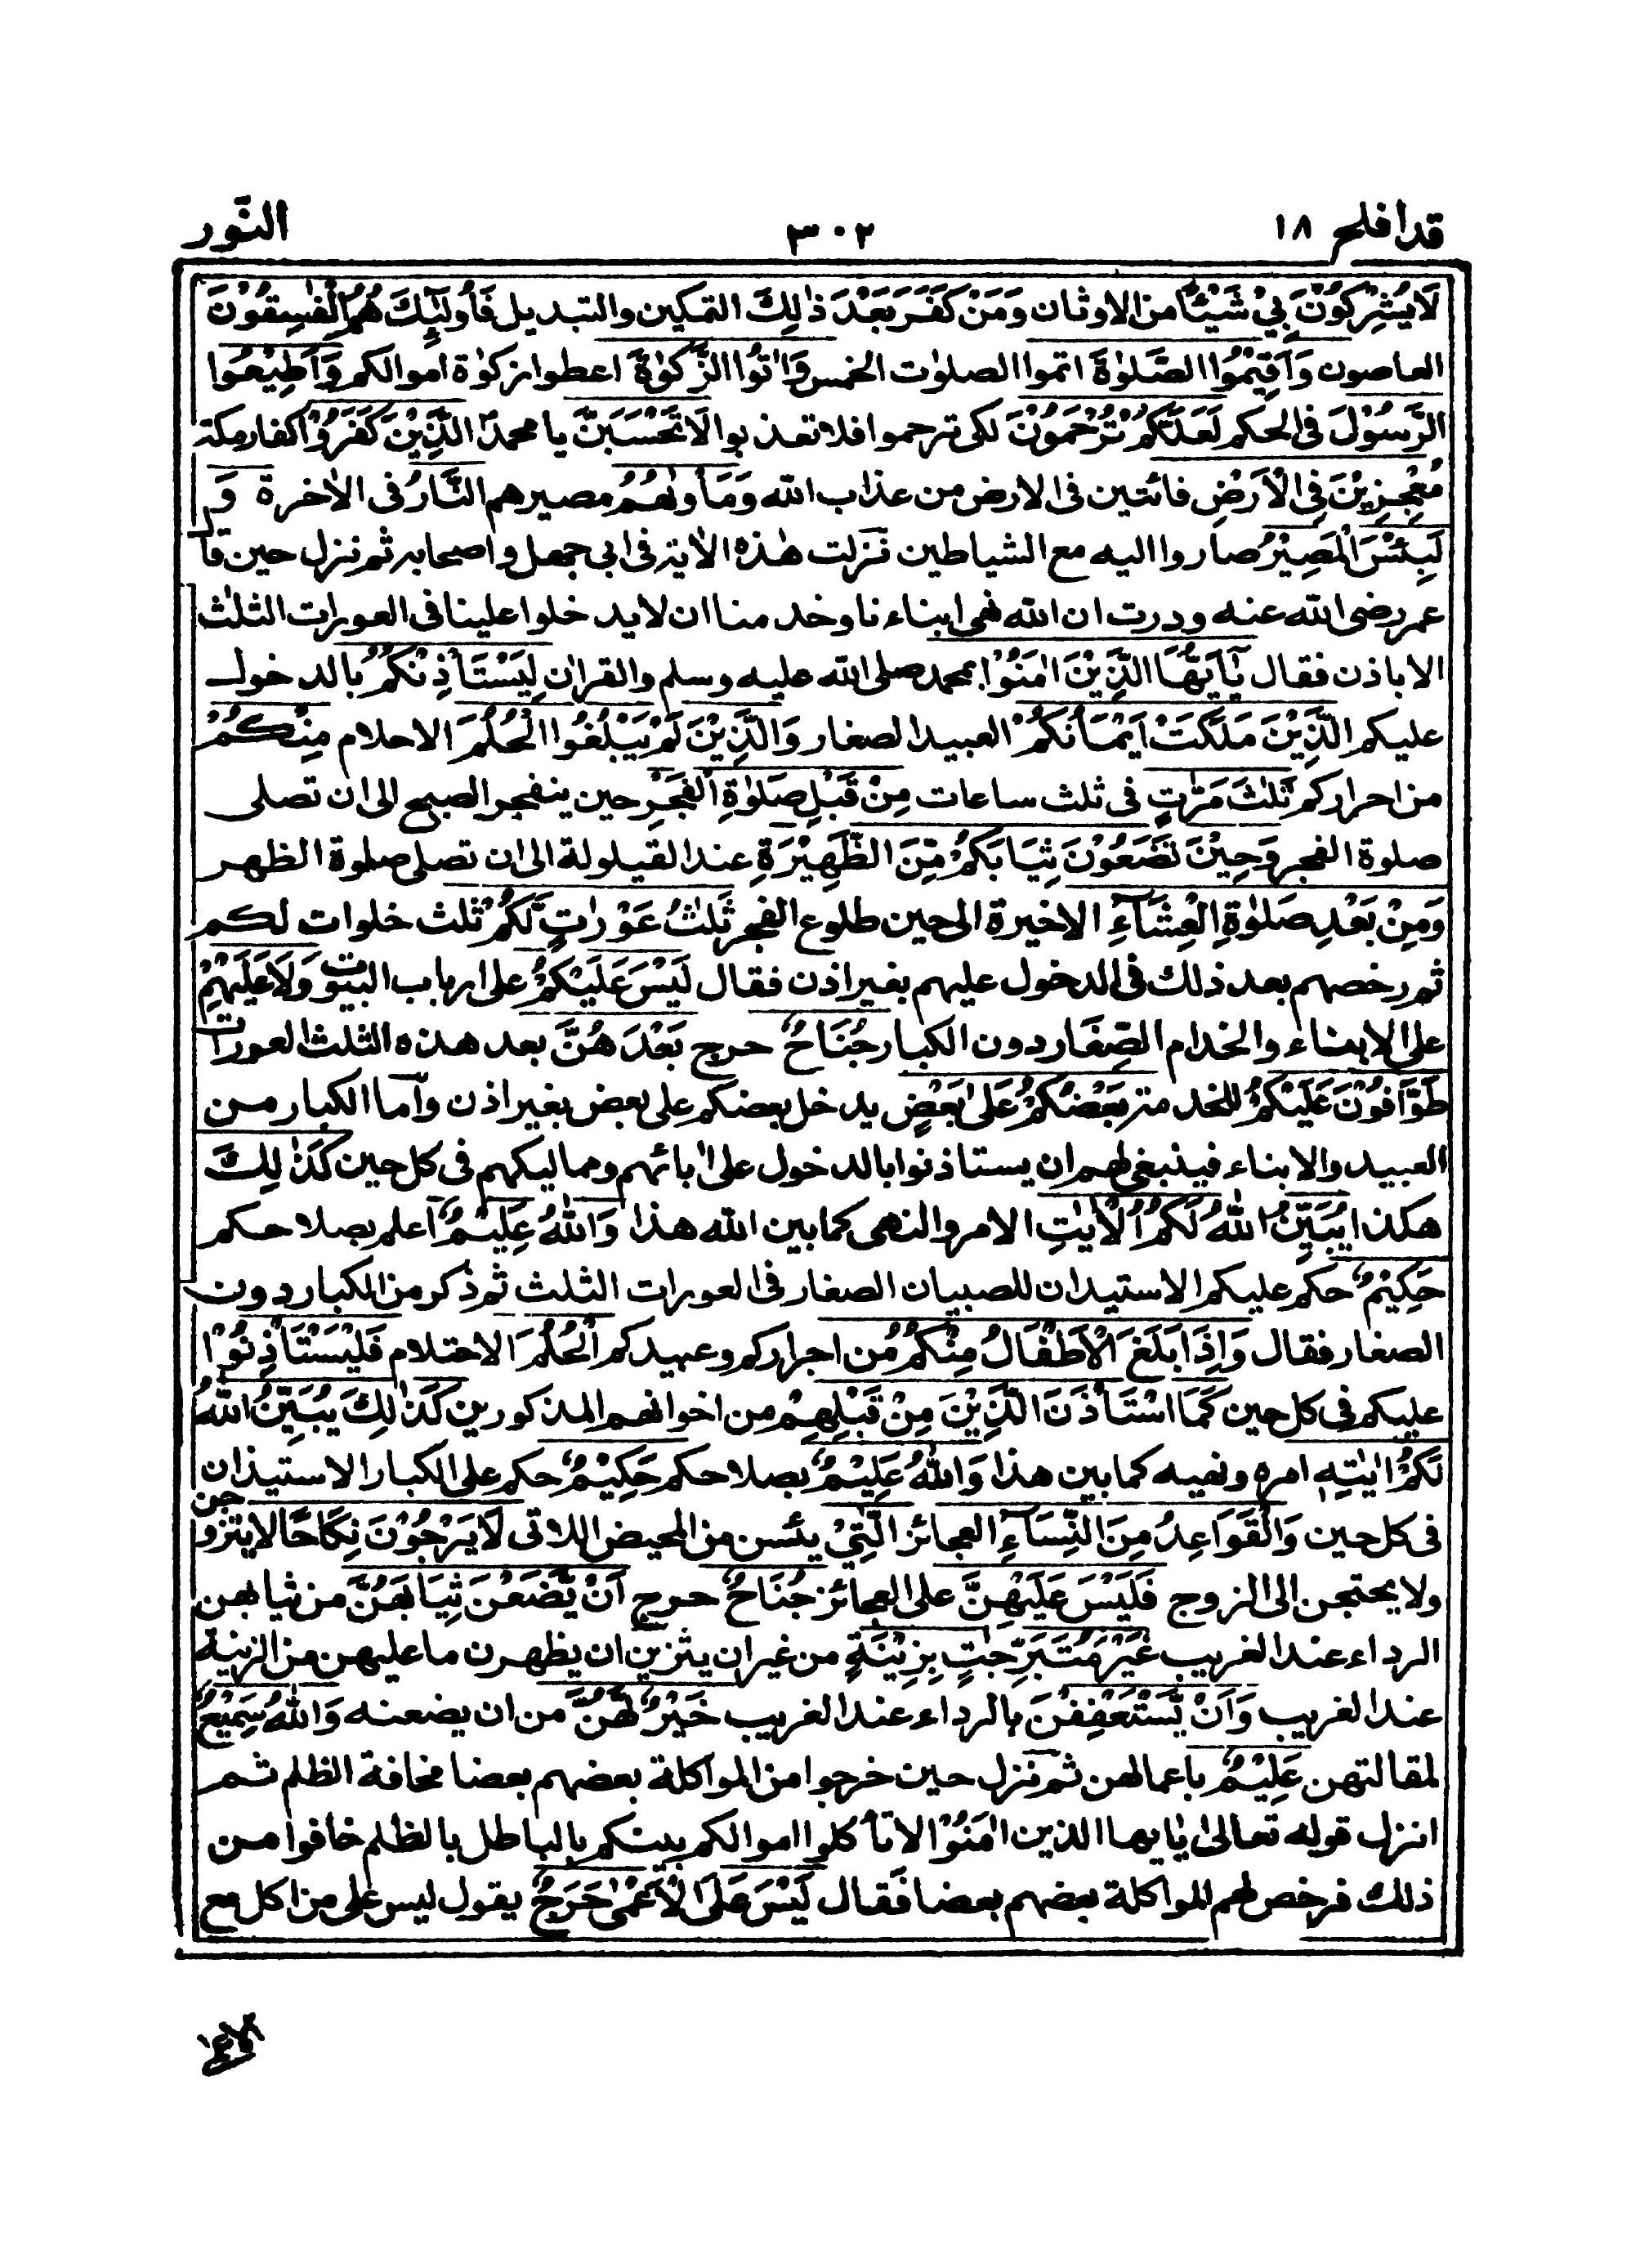 قد افلح ١٨
٣٠٢
النّور
لَا يُشْرِكُوْنَ بِيْ شَيْئًا من الاوثان وَمَنْ كَفَرَ بَعْدَ ذٰلِكَ التمكين والتبديل فَاُولٰٓئِكَ هُمُ الْفٰسِقُوْنَ
العاصون وَاَقِيْمُوا الصَّلٰوةَ اتموا الصلوٰت الخمس وَاٰتُوا الزَّكٰوةَ اعطوا زكوٰة اموالكم وَاَطِيْعُوا
الرَّسُوْلَ فى الحكم لَعَلَّكُمْ تُرْحَمُوْنَ لكى ترحموا فلا تعذبوا لَا تَحْسَبَنَّ يا محمدؐ الَّذِيْنَ كَفَرُوْا كفار مكة
مُعْجِزِيْنَ فِى الْاَرْضِ فائتين فى الارض من عذاب الله وَمَاْوٰىهُمُ مصيرهم النَّارُ فى الاٰخرة وَ
لَبِئْسَ الْمَصِيْرُ صاروا اليه مع الشياطين نزلت هٰذه الاٰية فى ابى جهل واصحابه ثم نزل حين قا
عمر رضى الله عنه وددت ان الله نهى ابناءنا وخدمنا ان لا يدخلوا علينا فى العورات الثلٰث
الا باذن فقال يٰٓاَيُّهَا الَّذِيْنَ اٰمَنُوْا بمحمد صلى الله عليه وسلم والقراٰن لِيَسْتَاْذِنْكُمُ بالدخول
عليكم الَّذِيْنَ مَلَكَتْ اَيْمَانُكُمْ العبيد الصغار وَالَّذِيْنَ لَمْ يَبْلُغُوا الْحُلُمَ الاحلام مِنْكُمْ
من احراركم ثَلٰثَ مَرّٰتٍ فى ثلث ساعات مِنْ قَبْلِ صَلٰوةِ الْفَجْرِ حين ينفجر الصبح الى ان تصلى
صلوة الفجر وَحِيْنَ تَضَعُوْنَ ثِيَابَكُمْ مِّنَ الظَّهِيْرَةِ عند القيلولة الى ان تصلى صلوة الظهر
وَمِنْ بَعْدِ صَلٰوةِ الْعِشَآءِ الاخيرة الى حين طلوع الفجر ثَلٰثُ عَوْرٰتٍ لَّكُمْ ثلث خلوات لكم
ثم رخصهم بعد ذلك فى الدخول عليهم بغير اذن فقال لَيْسَ عَلَيْكُمْ على ارباب البيوت وَلَا عَلَيْهِمْ
على الابناء والخدام الصِّغَار دون الكبار جُنَاحٌ حرج بَعْدَهُنَّ بعد هذه الثلث العورات
طَوّٰفُوْنَ عَلَيْكُمْ للخدمة بَعْضُكُمْ عَلٰى بَعْضٍ يدخل بعضكم على بعض بغير اذن واما الكبار من
العبيد والابناء فينبغى لهم ان يستاذنوا بالدخول على اٰبائهم ومماليكهم فى كل حين كَذٰلِكَ
هكذا يُبَيِّنُ اللهُ لَكُمُ الْاٰيٰتِ الامر والنهى كما بين الله هذا وَاللهُ عَلِيْمٌ اعلم بصلاحكم
حَكِيْمٌ حكم عليكم الاستيذان للصبيان الصغار فى العورات الثلث ثم ذكر من الكبار دون
الصغار فقال وَاِذَا بَلَغَ الْاَطْفَالُ مِنْكُمْ من احراركم وعبيدكم الْحُلُمَ الاحتلام فَلْيَسْتَاْذِنُوْا
عليكم فى كل حين كَمَا اسْتَاْذَنَ الَّذِيْنَ مِنْ قَبْلِهِمْ من اخوانهم المذكورين كَذٰلِكَ يُبَيِّنُ اللهُ
لَكُمْ اٰيٰتِهٖ امره ونهيه كما بين هذا وَاللهُ عَلِيْمٌ بصلاحكم حَكِيْمٌ حكم على الكبار الاستيذان
فى كل حين وَالْقَوَاعِدُ مِنَ النِّسَآءِ العجائز الّٰتِيْ يئسن من المحيض اللاتى لَا يَرْجُوْنَ نِكَاحًا لا يتزوجن
ولا يحتجن الى الزوج فَلَيْسَ عَلَيْهِنَّ على العجائز جُنَاحٌ حرج اَنْ يَّضَعْنَ ثِيَابَهُنَّ من ثيابهن
الرداء عند الغريب غَيْرَ مُتَبَرِّجٰتٍ بِزِيْنَةٍ من غير ان يتزين ان يظهرن ما عليهن من الزينة
عند الغريب وَاَنْ يَّسْتَعْفِفْنَ بالرداء عند الغريب خَيْرٌ لَّهُنَّ من ان يضعنه وَاللهُ سَمِيْعٌ
لمقالتهن عَلِيْمٌ باعمالهن ثم نزل حين خرجوا من المواكلة بعضهم بعضا مخافة الظلم ثم
انزل قوله تعالىٰ يٰايها الذين اٰمَنُوْا لا تاْكلوا اموالكم بينكم بالباطل بالظلم خافوا من
ذلك فرخص لهم المواكلة بعضهم بعضا فَقال لَيْسَ عَلَى الْاَعْمٰى حَرَجٌ يقول ليس على من اكل مع